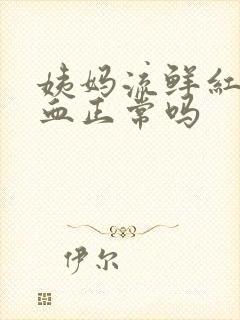 姨妈流鲜红
血正常吗
伊尔